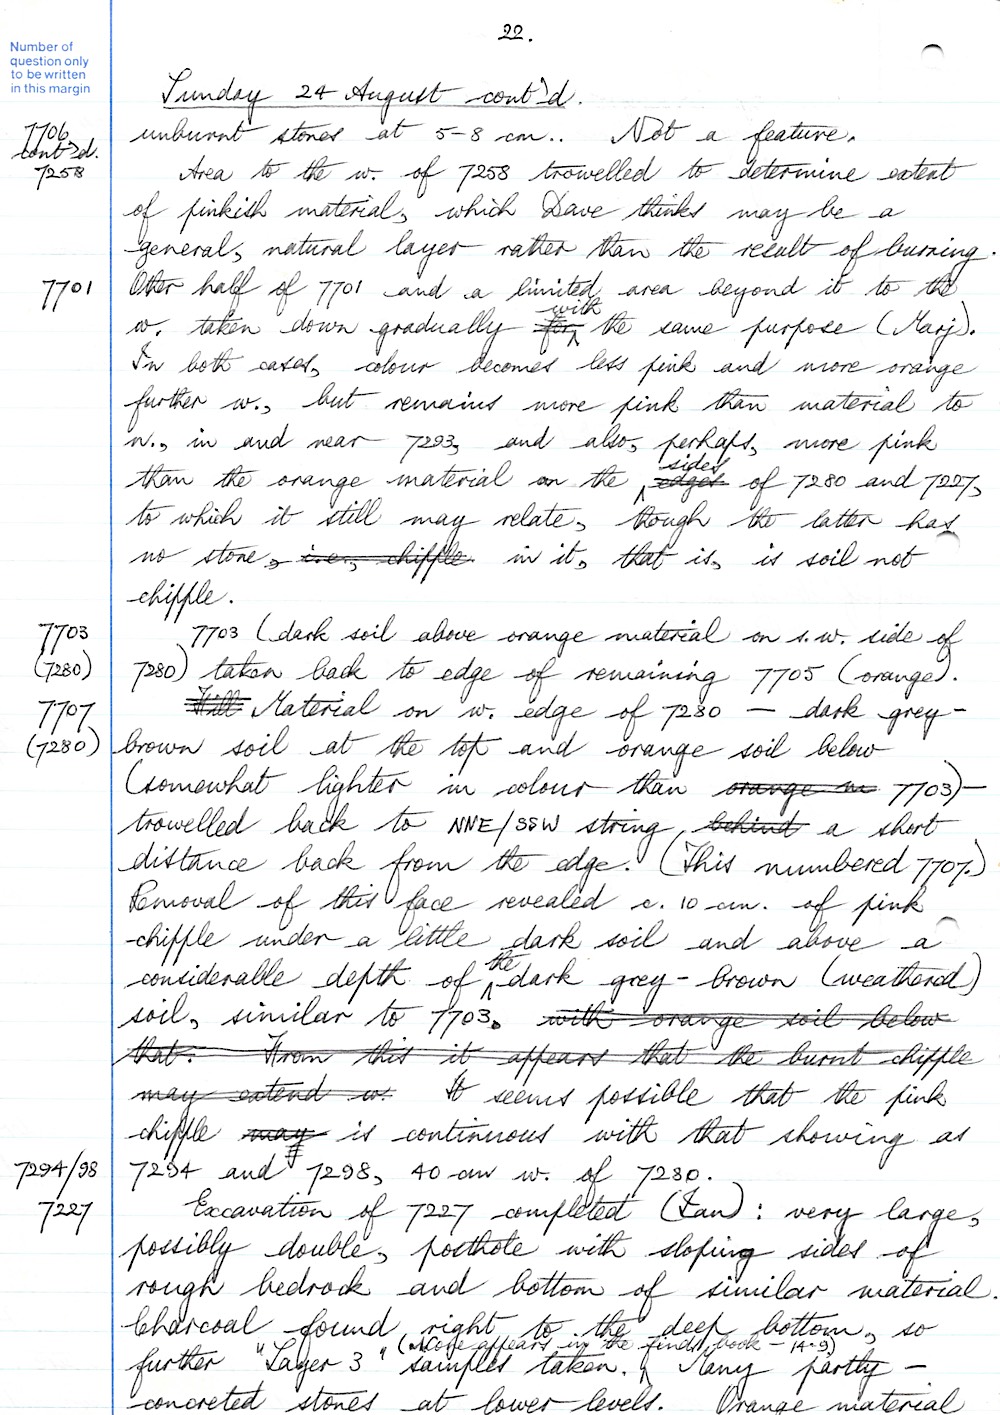 22.
Number of
question only
to be written
in this margin
Sunday 24 August cont'd.
7706
cont'd.
unburnt stones at 5-8 cm.. Not a feature.
7258
Area to the w. of 7258 trowelled to determine extent
of pinkish material, which Dave thinks may be a
general, natural layer rather than the result of burning.
7701
Other half of 7701 and a limited area beyond it to the
with
w. taken down gradually for the same purpose (Marj).
In both cases, colour becomes less pink and more orange
further w., but remains more pink than material to
n., in and near 7293, and also, perhaps, more pink
sides
than the orange material on the edges of 7280 and 7227,
to which it still may relate, though the latter has
no stone, i.e., chipple in it, that is, is soil not
chipple.
7703
7703 (dark soil above orange material on s.w. side of
(7280)
7280) taken back to edge of remaining 7705 (orange).
7707
Fill Material on w. edge of 7280 — dark grey-
(7280)
brown soil at the top and orange soil below
(somewhat lighter in colour than orange in 7703)—
trowelled back to NNE/SSW string, behind a short
distance back from the edge. (This numbered 7707.)
Removal of this face revealed c. 10 cm. of pink
chipple under a little dark soil and above a
the
considerable depth of dark grey-brown (weathered)
soil, similar to 7703. with orange soil below
that. From this it appears that the burnt chipple
may extend w. It seems possible that the pink
chipple may is continuous with that showing as
7294/98
7294 and 7298, 40 cm w. of 7280.
7227
Excavation of 7227 completed (Ian): very large,
possibly double, posthole with sloping sides of
rough bedrock and bottom of similar material.
Charcoal found right to the deep bottom, so
(None appears in the finds book - 14.9)
further "Layer 3" samples taken. Many partly-
concreted stones at lower levels. Orange material